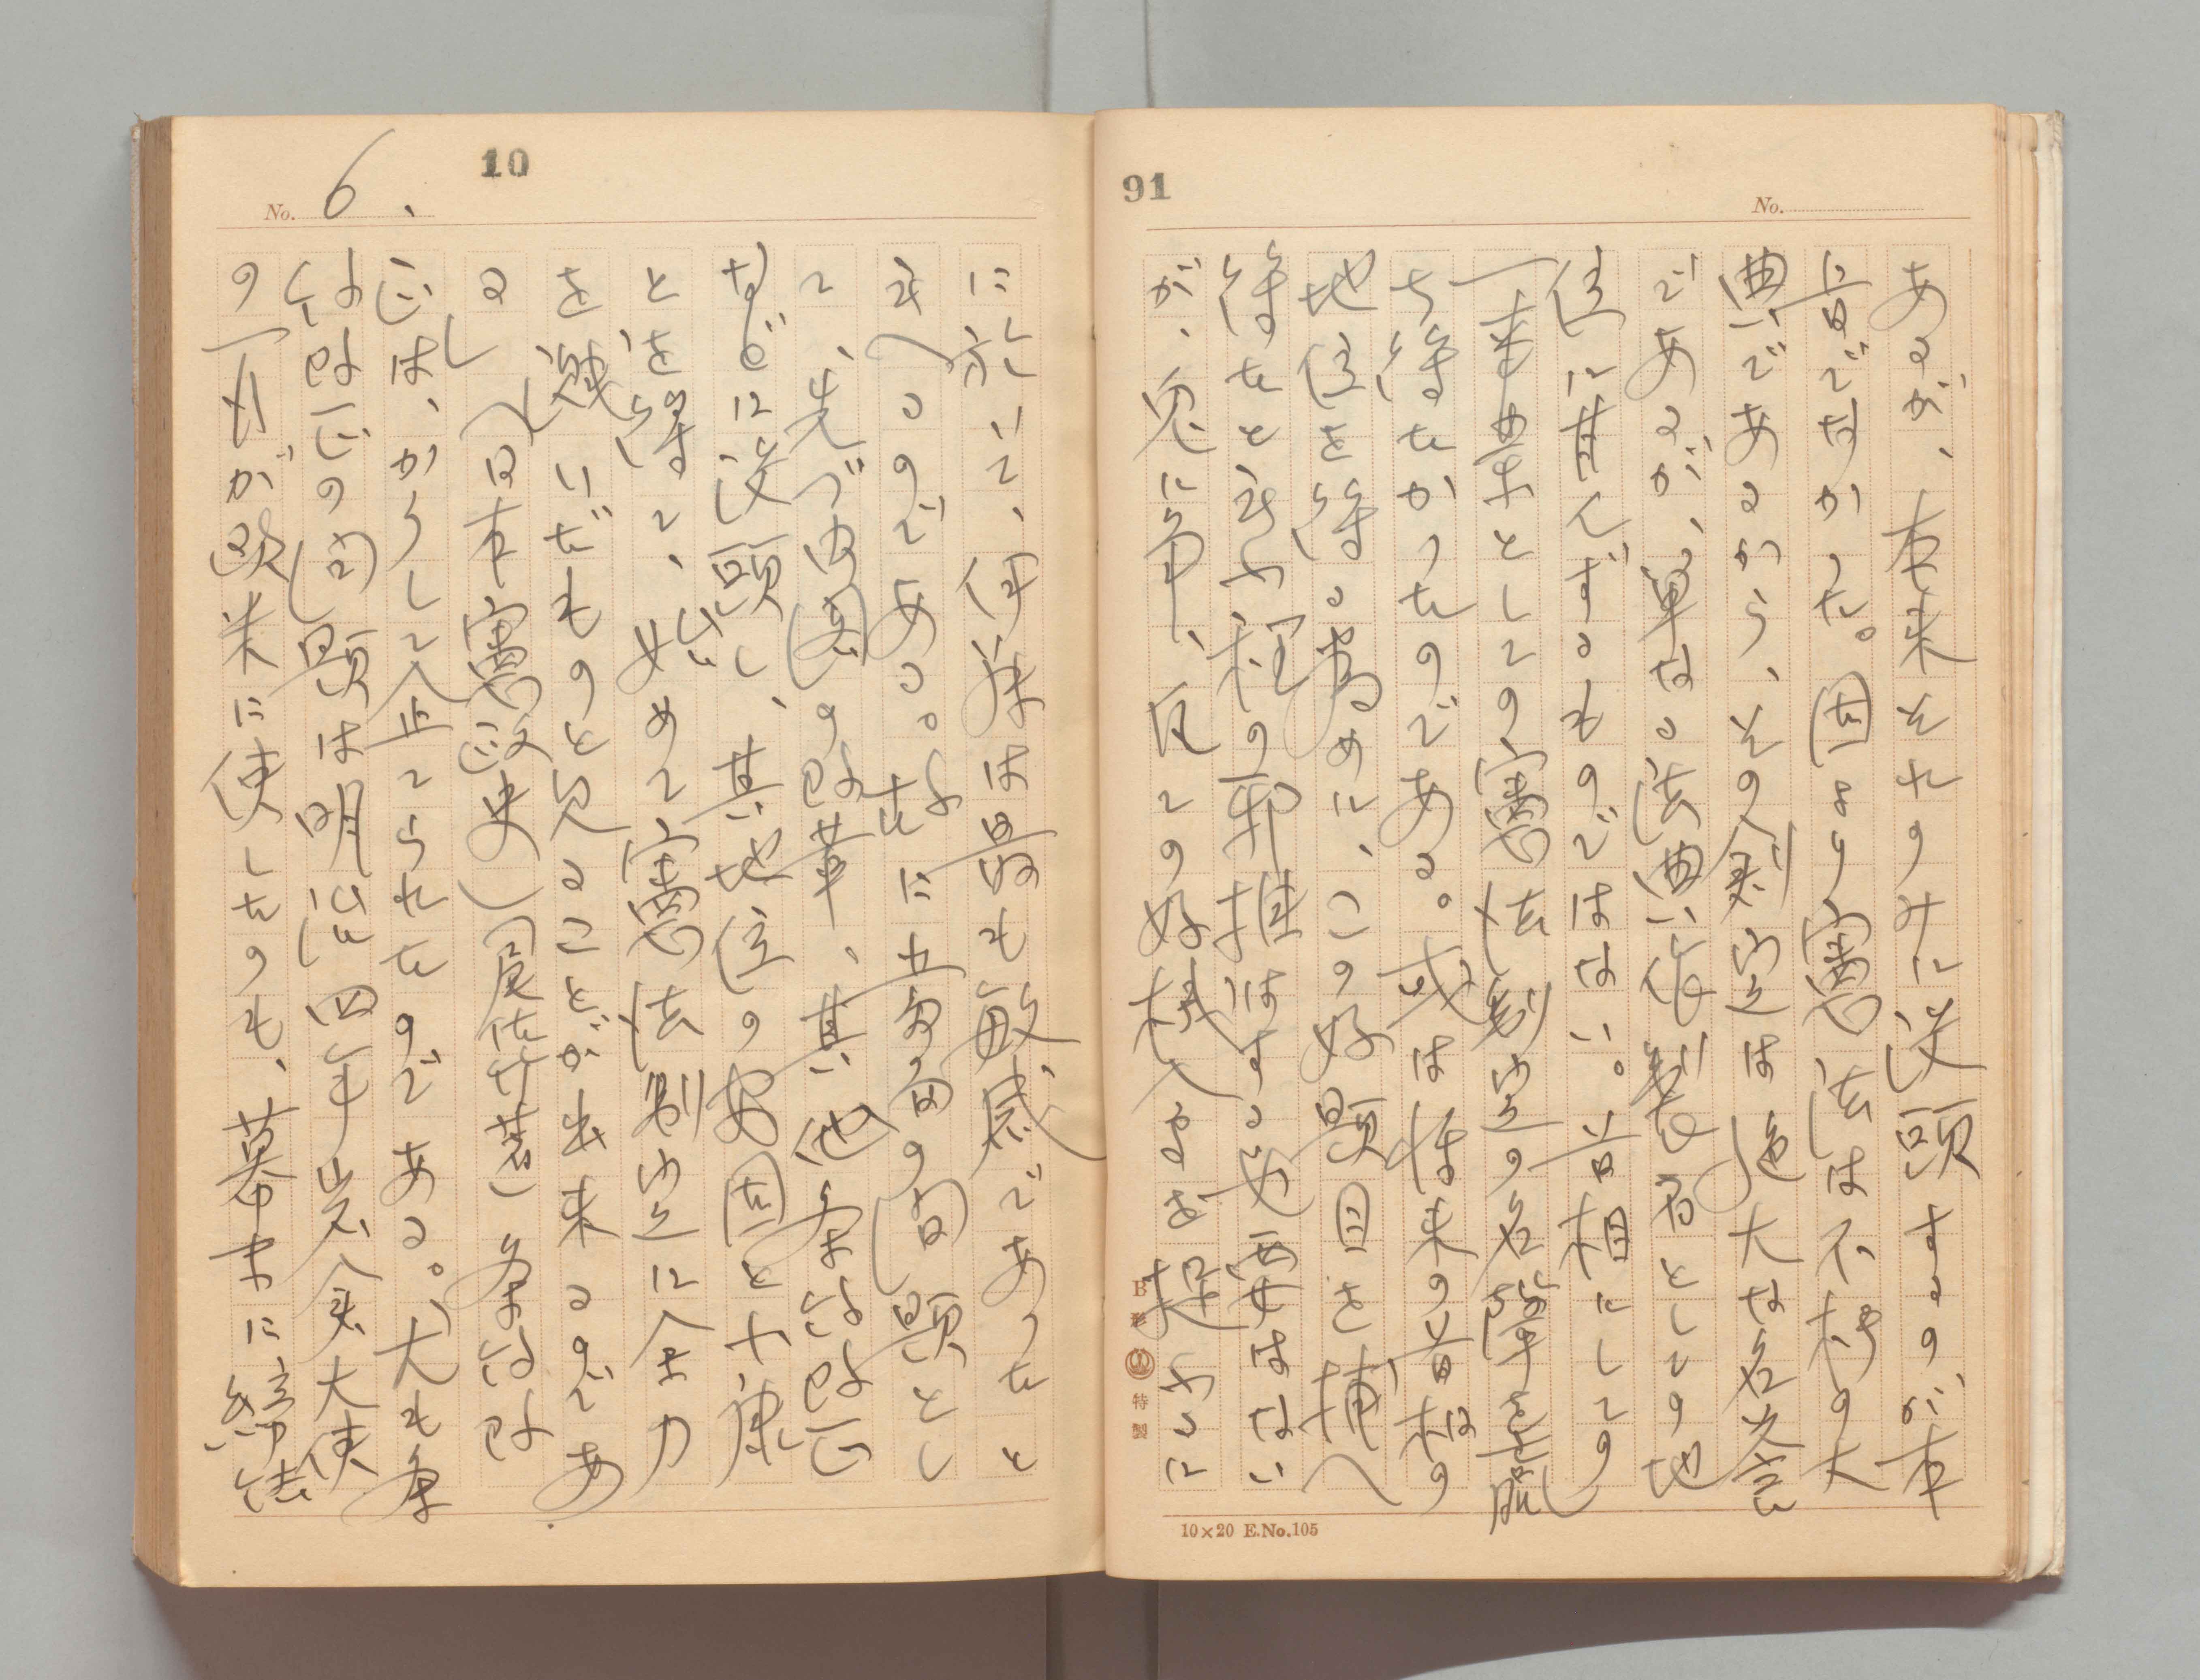 91
No.
あるが、本来それのみに没頭するのが本
旨でなかつた。固より憲法は不朽の大
典であるから、その制定は絶大な名誉
であるが、単なる法典作製者としての地
位に甘んずるものではない。首相にしての
一事業としての憲法制定の名誉を
ち得たかつたのである。或は将来の首相の
地位を得る為めに、この好題目を捕へ
得たと云ふ程の邪推はする必要はない
が、兎に角、伊藤の好機
10×20 E.No.105
B形 特製
10
No. 6.
に於いて、伊藤は最も敏感であつたと
云へるのである。故に立家の問題とし
て、先づ内閣の改革、其他条約改正
などに没頭し、其地位の安固と小康
とを得て、始めて憲法制定に全力
を濺いだものと見ることが出来るのであ
る(日本憲政史)(尾佐竹著)条約改
正は、かうして入止てられたのである。尤も条
約改正の問題は明治四年岩倉大使
の一行が欧米に使したのも、幕末に締結